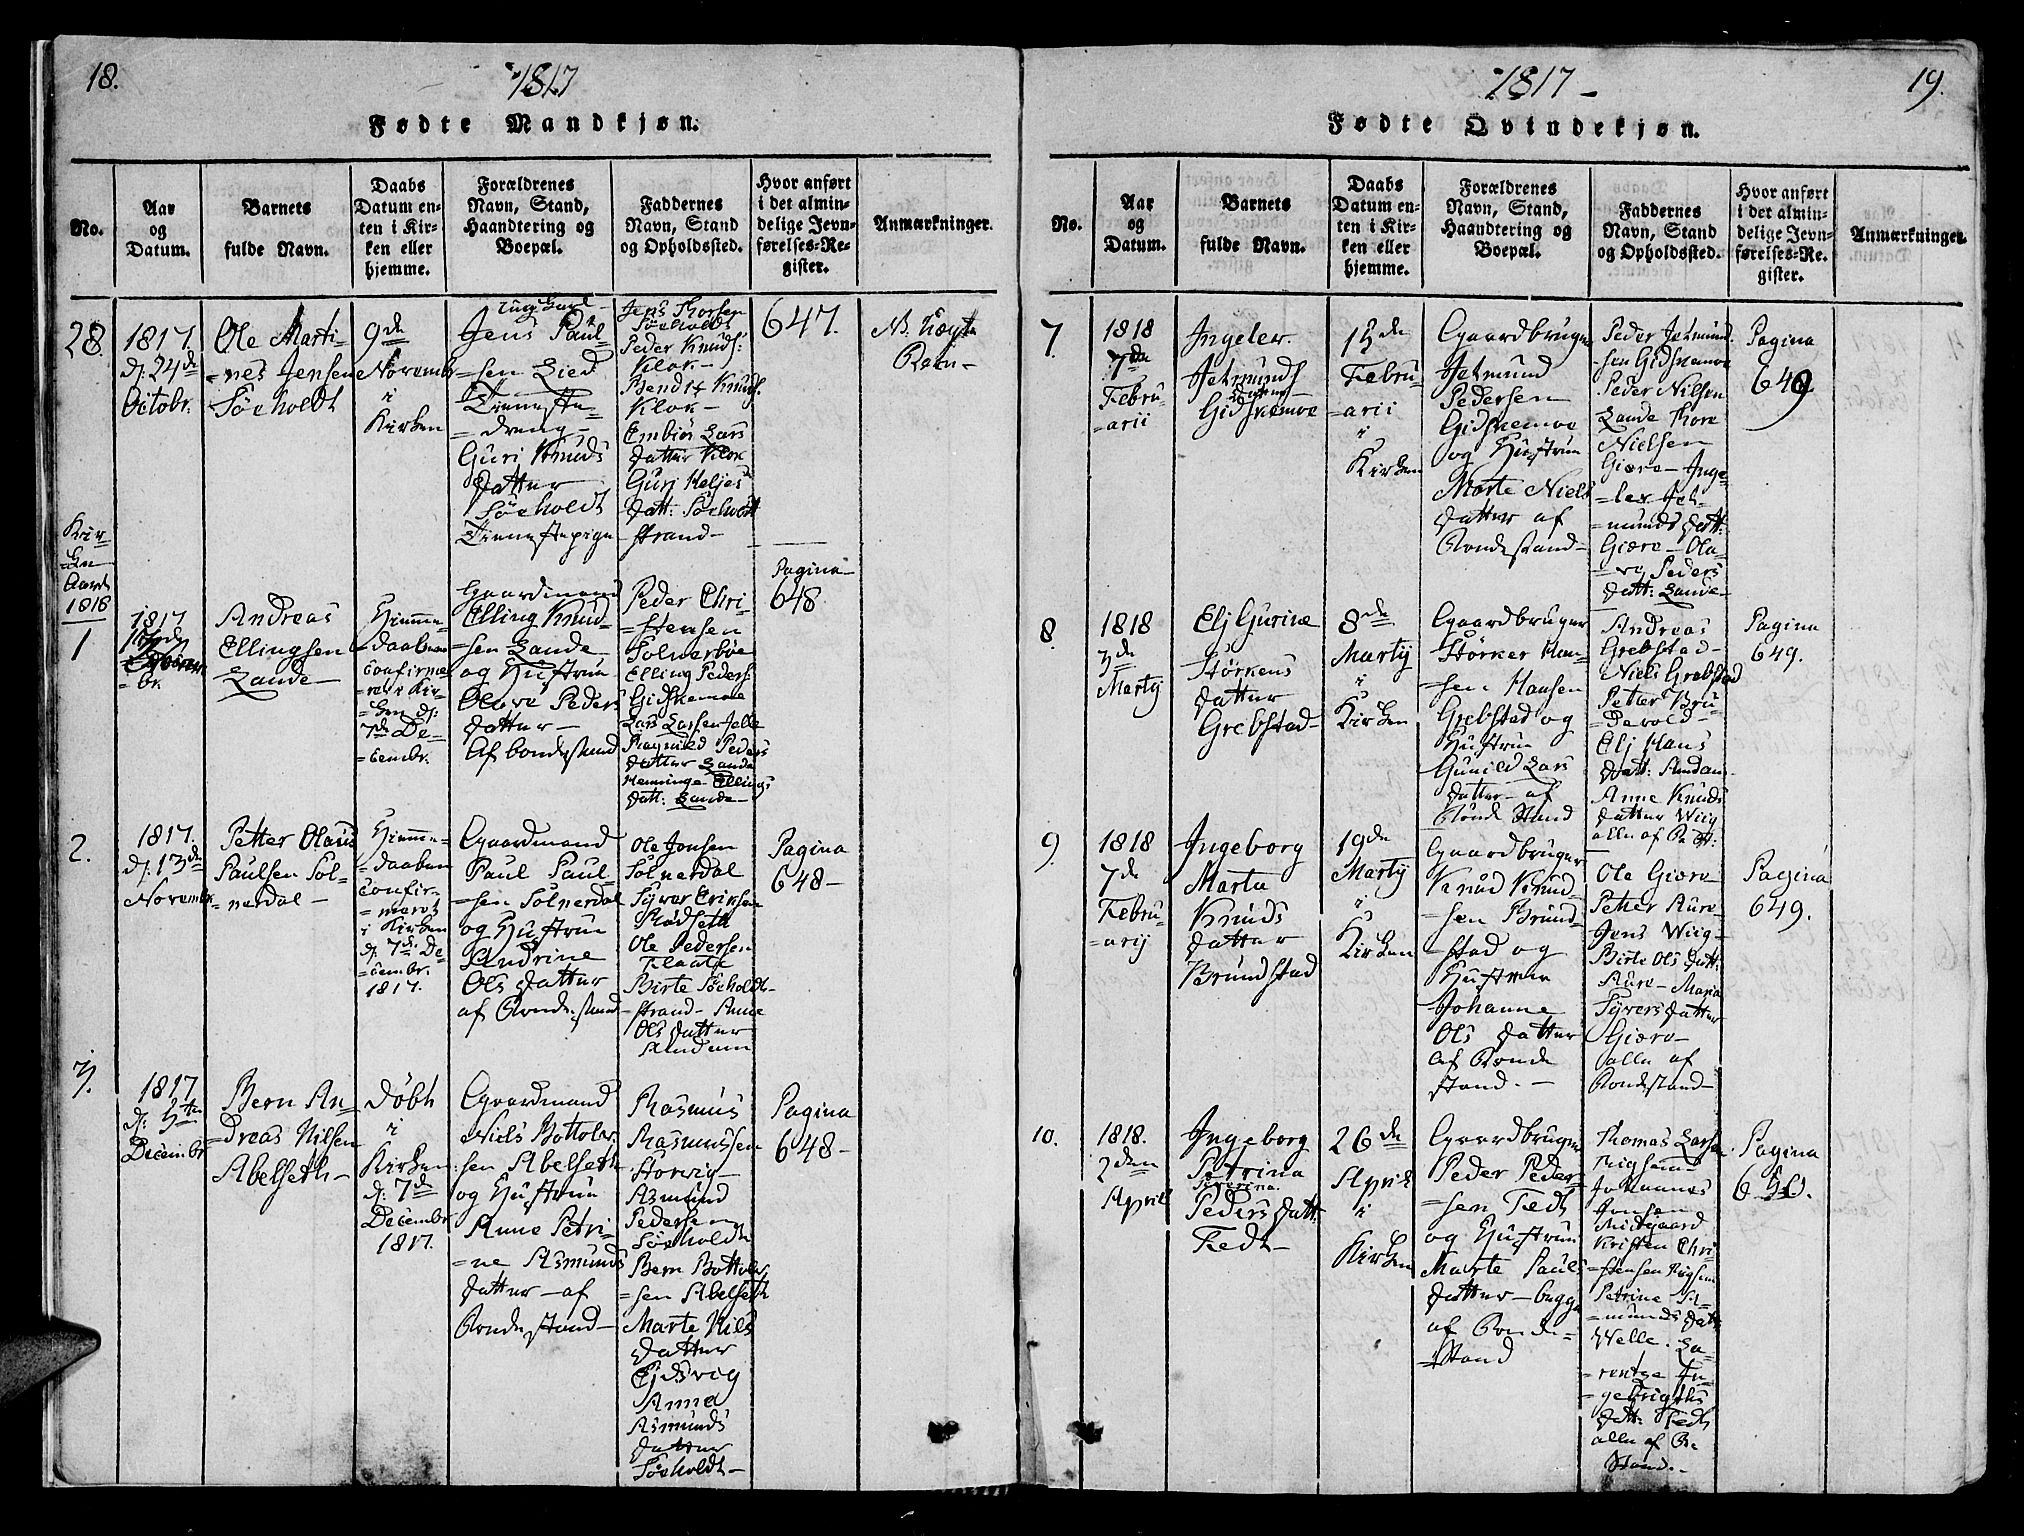 18.
1817
Fødte Mandkjøn.
No.
Aar
og
Datum.
Barnets
fulde Navn.
Daabs
Datum en-
ten i Kir-
ken eller
hjemme.
Forældrenes
Navn, Stand,
Haandtering og
Boepæl.
Faddernes
Navn, Stand
og Opholdssted.
Hvor anført
i det almin-
delige Jevn-
førelses-Re-
gister.
Anmærkninger.
28.
1817.
d: 24de
Octobr.
Ole Marti-
=nes Jensen
Söeholdt
9de
Novembr
i
Kirken
Jens Paul-
=sen Lied
Tieneste-
=dreng-
Guri Knuds
Datter
Söeholdt
Tienestepige
Jens Thorsen
Söeholdt
Peder Knuds:
Klok-
Bendt Knuds.
Klok-
Embiör Lars
Datter Klok
Guri Heljes
Datt: Söeholdt
-strand-
647.
Kir=
=ke
Aaret
1818
1
1817
Andreas
Ellingsen
Lande-
Hiemme-
=daaben
confirme
=ret i Kir=
=ken d:
7de De=
=cembr.
Gaardmand
Elling Knud-
=sen Lande
og Hustrue
Olave Peders
Datter-
Af bondestand
Peder Chri-
=stensen
Solnerböe
Elling Peders:
Gidskemoe
Lars Larsen Jelle
Ragnild Peders
Datter Lande
Henninge Ellings
Datt: Lande-
Pagina-
648.
2.
1817.
d: 13de
Novembr
Petter Olaus
Paulsen Sol-
=nerdal-
Hiemme-
=daaben
Confir-
=meret
i Kirken
d: 7de De=
=cembr.
1817.
Gaardmand
Paul Paul-
=sen Solnerdal
og Hustrue
Andrine
Ols Datter
af Bondestand
Ole Jonsen
Solnerdal
Syver Eriksen
Rödseth
Ole Pedersen
Flaate
Birte Söeholdt-
=strand- Anne
Ols Datter
Amdam
Pagina
648-
3.
1817.
d: 3die
Decembr
Bern An-
=dreas Nilsen
Abelseth-
Döbt
i
Kirken
d: 7de
Decembr
1817.
Gaardmand
Niels Bottolv-
=sen Abelseth
og Hustrue
Anne Petri-
=ne Asmunds
Datter- af
Bondestand-
Rasmus
Rasmussen
Storvig-
Asmund
Pedersen
Söeholdt
Bern Bottolv
=sen Abelseth
Marte Nils
Datter
Ejdsvig
Anne
Asmunds
Datter
Söeholdt-
Pagina
648-
1817-
19.
Fødte Qvindekjøn.
No.
Aar
og
Datum.
Barnets
fulde Navn.
Daabs
Datum en-
ten i Kir-
ken eller
hjemme.
Forældrenes
Navn, Stand,
Haandtering og
Boepæl.
Faddernes
Navn, Stand
og Opholdssted.
Hvor anført
i det almin-
delige Jevn-
førelses-Re-
gister.
Anmærkninger.
7.
1818
7de
Febru-
=arii
Ingeler
Jetmunds
Datter
Gidskemoe
15de
Febru-
=arii
i
Kirken
Gaardbruger
Jetmund
Pedersen
Gidskemoe
og Hustrue
Marte Niels
Datter af
Bondestand-
Peder Jetmund-
=sen Gidskemoe
Peder Nilsen
Lande Thore
Nielsen
Giære- Inge-
=ler Jet-
=munds Datt:
Giære- Ola-
=ve Peders
Datt: Lande-
Pagina
649
8
1818
3de
Martij
Elj Gurine
Störkers
Datter
Grebstad-
8de
Martij
i
Kirken
Gaardbruger
Störker Han-
=sen Hansen
Grebstad og
Hustrue
Gunild Lars
Datter- af
Bonde Stand
Andreas
Grebstad-
Niels Grebstad
Petter Bru-
=devold-
Elj Hans
Datt: Amdam-
Anne Knuds
Datter Wiig
alle af B: St:
Pagina
649.
9.
1818
7de
Febru-
=arij
Ingeborg
Marta
Knuds
Datter
Brundstad
19de
Martij
i
Kirken
Gaardbruger
Knud Knud-
=sen Brund-
=stad og
Hustrue
Johanne
Ols Datter
af Bonde
stand.-
Ole Giære-
Petter Aure-
Jens Wiig-
Birte Ols Datt:
Aure- Maria
Syvers Datter
Giære-
alle af
Bondestand-
Pagina
649.
10.
1818.
2den
April
Ingeborg
Petrina
Severina
Peders Datt:
Fedt-
26de
April
i
Kirken
Gaardbruger
Peder Peder-
=sen Fedt
og Hustrue
Marte Pauls
Datter- begge
af Bonde=
=Stand
Thomas Larsen
Johannes
Jonsen
Midgaard
Kristen Chri-
=stensen
Petrine A-
=munds Datt:
Welle. La-
=rentze In-
=gebrigts
Datt: Fedt
alle af Bo
Stand.-
Pagina
650.